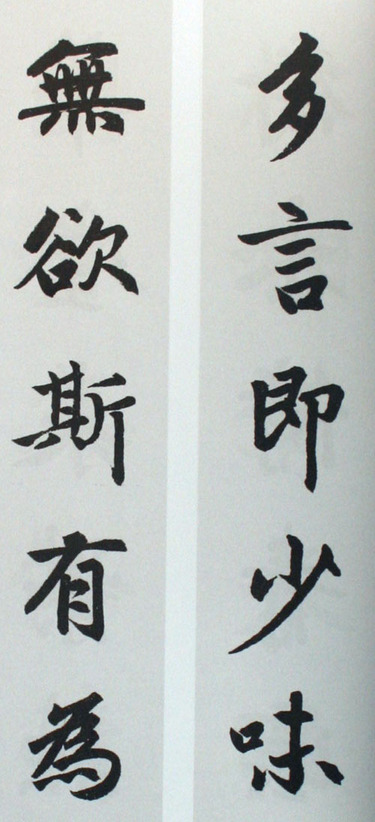 多言即少味
無欲斯有為